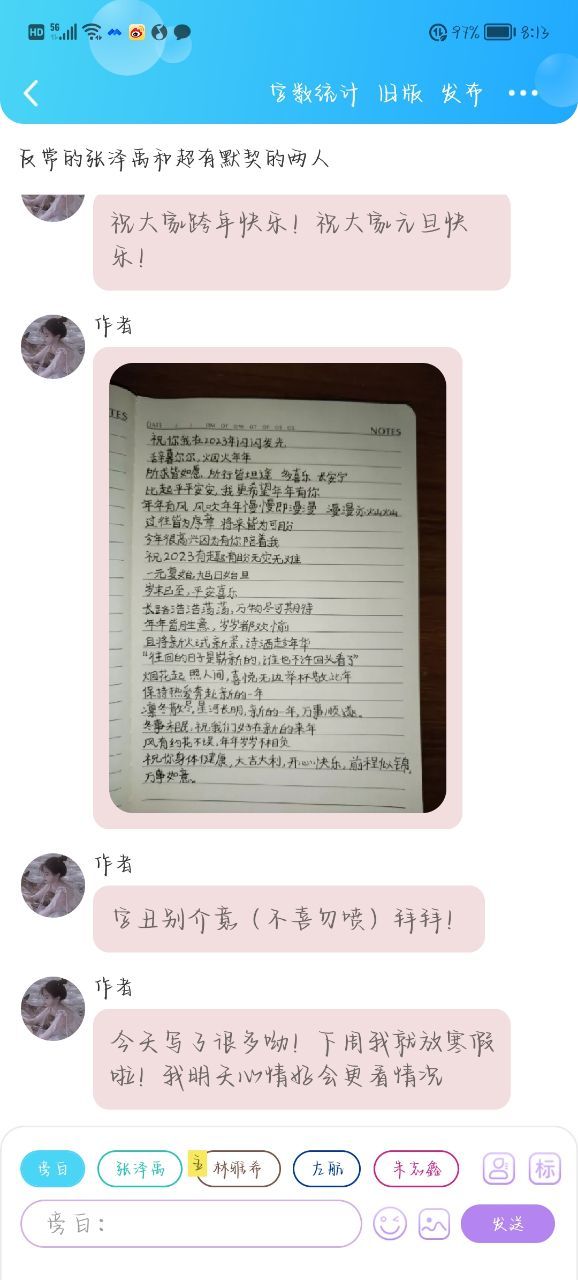 HD 5G 97% 8:13
字数统计 旧版 发布
反常的张泽禹和超有默契的两人
祝大家跨年快乐！祝大家元旦快
乐！
作者
TES
DATE
NOTES
祝你我在2023年闪闪发光
辞暮尔尔，烟火年年
所求皆如愿，所行皆坦途 多喜乐 长安宁
比起平平安安，我更希望年年有你
年年有风，风吹年年慢慢即漫漫 漫漫亦灿灿
过往皆为序章 将来皆为可盼
今年很高兴因为有你陪着我
祝2023有趣有盼无灾无难
一元复始，旭日始旦
岁末已至，平安喜乐
长路浩浩荡荡，万物尽可期待
年年皆胜意，岁岁都欢愉
且将新火试新茶，诗酒趁年华
“往回的日子是崭新的，谁也不许回头看了”
烟花起，照人间，喜悦无边举杯敬此年
保持热爱奔赴新的一年
凛冬散尽，星河长明，新的一年，万事顺遂。
冬事未眠，祝我们好在新的来年
风有约花不误，年年岁岁不相负
祝你身体健康，大吉大利，开心快乐，前程似锦，
万事如意。
作者
字丑别介意（不喜勿喷）拜拜！
作者
今天写了很多呦！下周我就放寒假
啦！我明天心情好会更看情况
旁白 张泽禹 主 林骃希 左航 朱志鑫 标
旁白： 发送